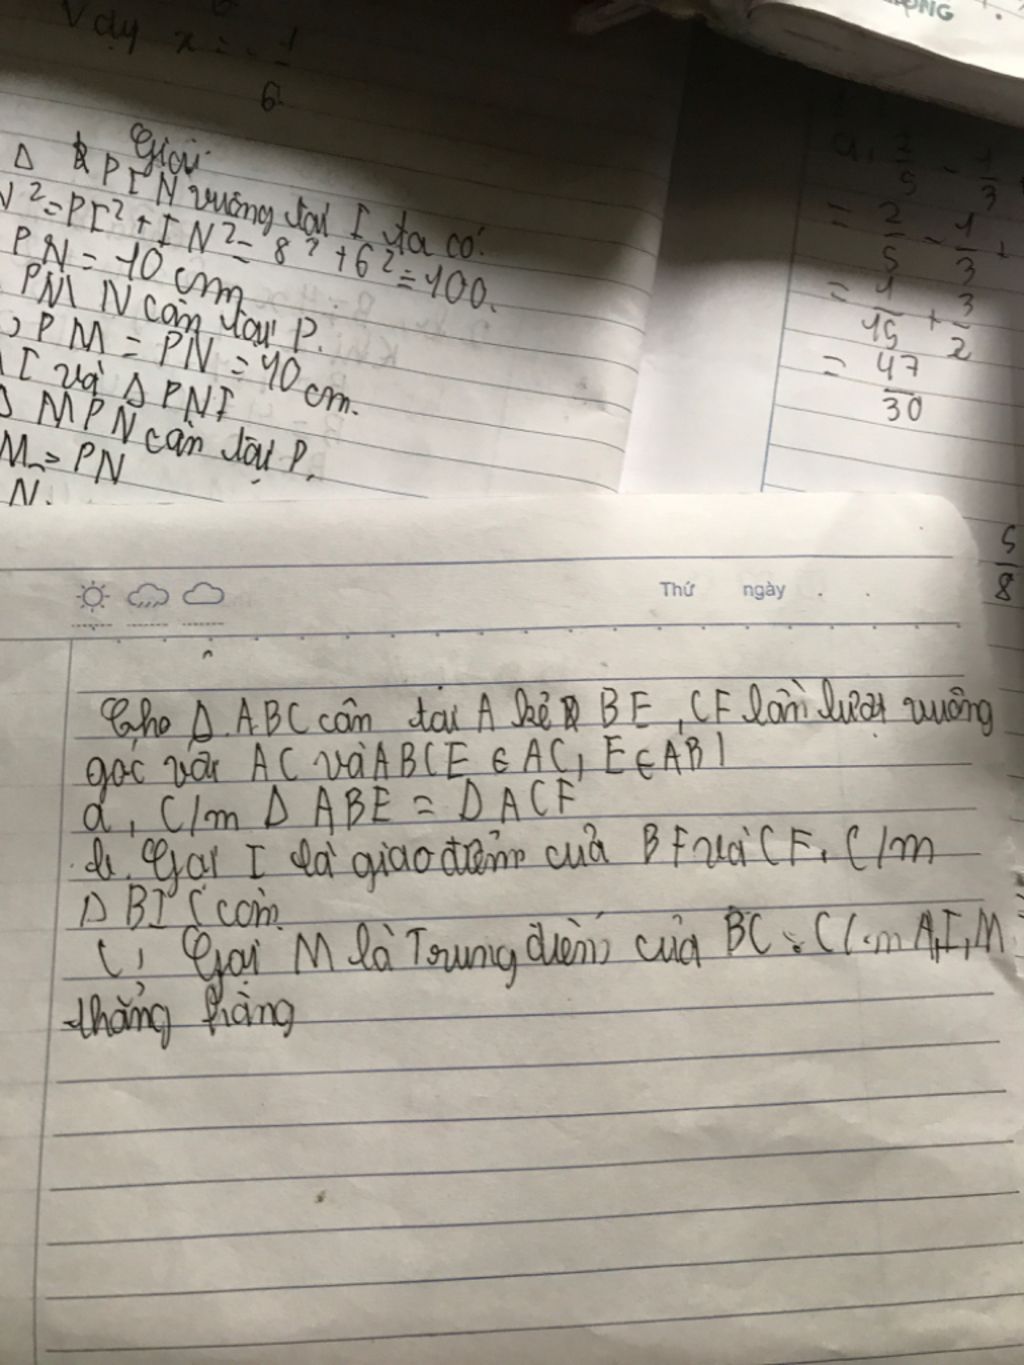 ƯƠNG
Vậy x = - 1/6
Giải
Δ PIN vuông tại I ta có:
N² = PI² + IN² = 8² + 6² = 100.
PN = 10 cm
PMN cân tại P.
PM = PN = 10 cm.
I và Δ PNI
Δ MPN cân tại P.
M = PN
N.
a, 2/5 - 1/3 +
= 2/5 - 1/3 +
= 1/15 + 3/2
= 47/30
5/8
Thứ ngày
Cho Δ ABC cân tại A kẻ BE, CF lần lượt vuông
góc với AC và AB (E ∈ AC, E ∈ AB)
a, C/m Δ ABE = Δ ACF
b. Gọi I là giao điểm của BF và CF. C/m
Δ BIC cân
C, Gọi M là Trung điểm của BC. C/m A, I, M
thẳng hàng